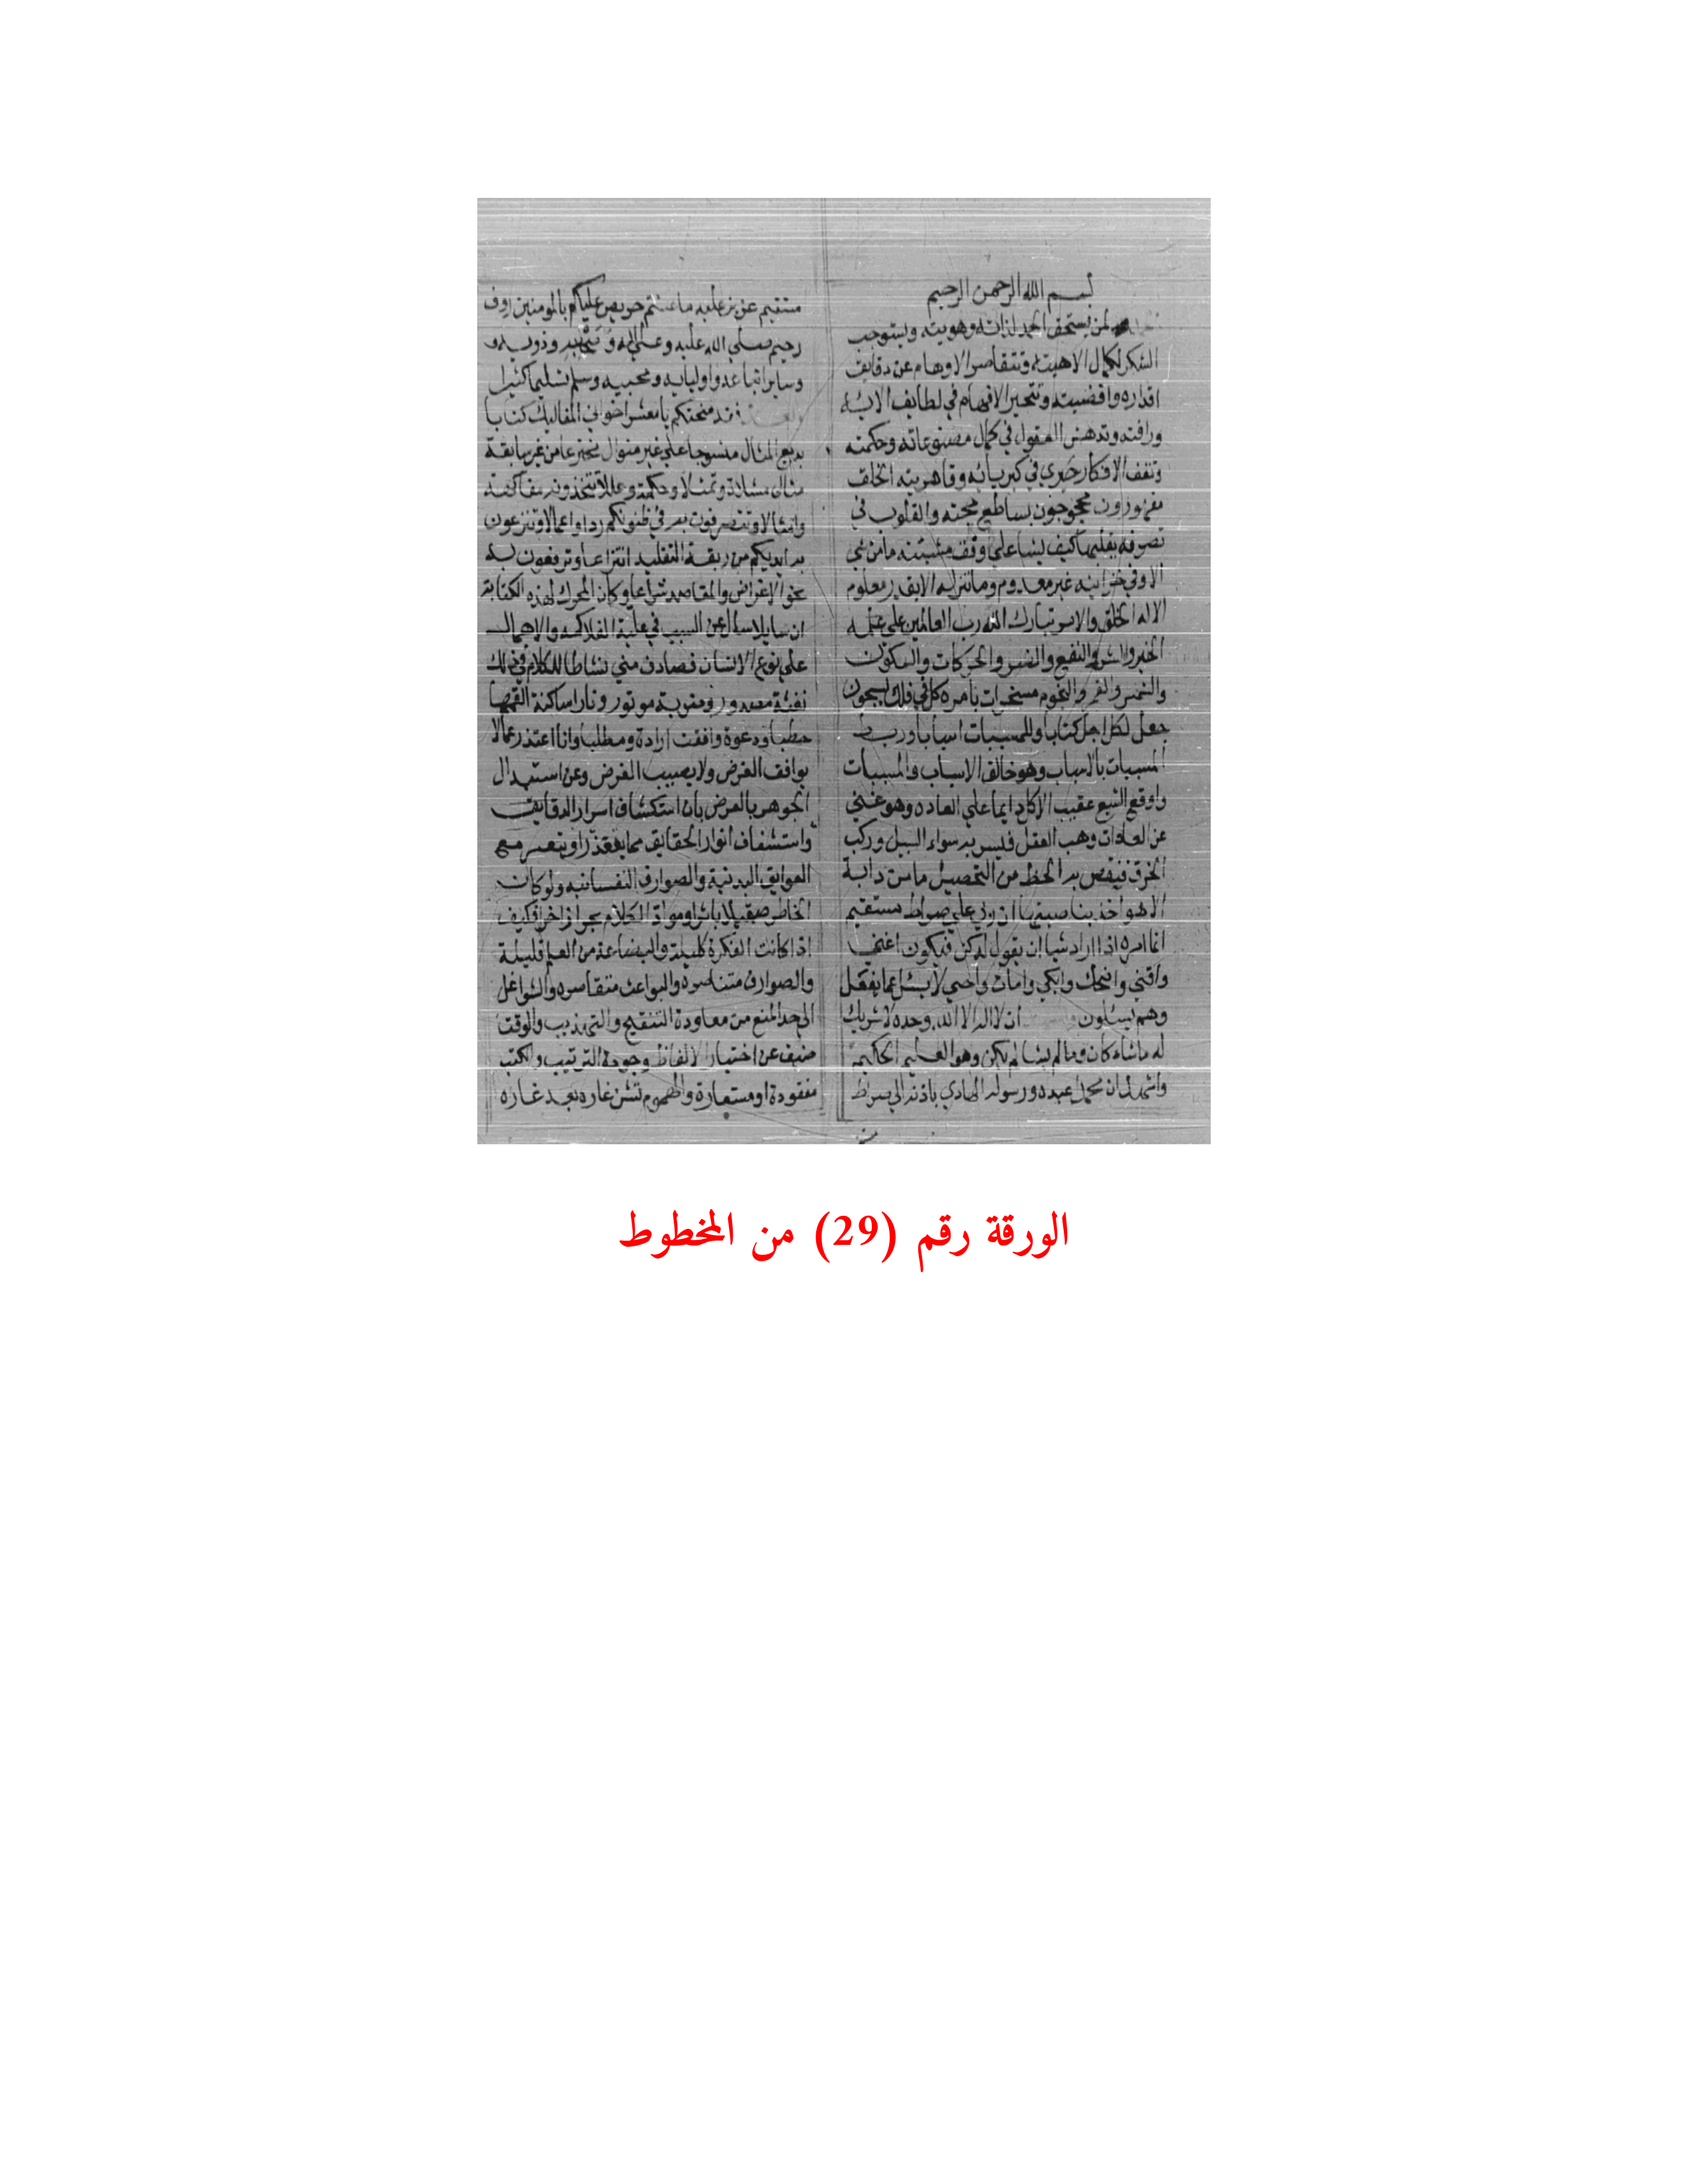 بسم الله الرحمن الرحيم
لمن يستحق الحمد لذاته وهويته ويستوجب
الشكر لكمال الاهيته وتتقاصر الاوهام عن دقايق
اقداره واقضيته وتتحير الافهام في لطايف الائه
ورافته وتدهش العقول في كمال مصنوعاته وحكمته
وتقف الافكار حيرى في كبريائه وقاهريته الخلق
مقهورون محجوجون بساطع حجته والقلوب في
تصرفه يقلبها كيف يشا على وفق مشيئته ما من شي
الا وفي خزاينه غير معدوم وما ننزله الا بقدر معلوم
الا له الخلق والامر تبارك الله رب العالمين على
الخير والشر والنفع والضر والحركات والسكون
والشمس والقمر والنجوم مسخرات بامره كل في فلك يسبحون
جعل لكل اجل كتابا وللمسببات اسبابا وربط
المسببات بالاسباب وهو خالق الاسباب والمسببات
واوقع الشبع عقيب الاكل دايما على العاده وهو غني
عن العادات وهب العقل فيسر به سواء السبيل وركب
الخرق فنقص به الحظ من التحصيل ما من دابة
الا هو اخذ بناصيتها ان ربي على صراط مستقيم
انما امره اذا اراد شيا ان يقول له كن فيكون اغنى
واقنى واضحك وابكى وامات واحيى لا يسئل عما يفعل
وهم يسئلون ان لا اله الا الله وحده لا شريك
له ما شاء كان وما لم يشا لم يكن وهو العليم الحكيم
واشهد ان محمدا عبده ورسوله الهادي باذنه الى صراط
مستقيم عزيز عليه ما عنتم حريص عليكم بالمومنين روف
رحيم صلى الله عليه وعلى اله وصحبه وذويه و
وساير اتباعه واوليايه ومحبيه وسلم تسليما كثيرا
فقد منحتكم يا معشر اخواني المفاليك كتابا
بديع المثال منسوجا على غير منوال مخترعا من غير سابقة
مثال مشادة وتمثلا وحكمة وعللا تتخذونه مفاكهة
وامثالا وتتصرفون به في ظنونكم ردا واعمالا وتنزعون
به ايديكم من ربقة التقليد انتزاعا وترفعون له
نحو الاغراض والمقاصد شراعا وكان المحرك لهذه الكتابة
ان سايلا سال عن السبب في غلبة الفلاكه والاهمال
على نوع الانسان فصادف مني نشاطا للكلام في ذلك
نفثة مصدور وموتور ونارا ساكنة القمها
حطبا ودعوة وافقت ارادة ومطلبا وانا اعتذر عما لا
يوافق الغرض ولا يصيب الغرض وعن استبدال
الجوهر بالعرض بان استكشاف اسرار الدقايق
واستشفاف انوار الحقايق مما يتعذر او يتعسر مع
العوايق البدنية والصوارف النفسانيه ولو كان
الخاطر صقيلا باترا ومواد الكلام بحرا زاخرا فكيف
اذا كانت الفكرة كليلة والبضاعة من العلم قليلة
والصوارف متناصره والبواعث متقاصره والشواغل
الى حد المنع من معاودة التنقيح والتهذيب والوقت
ضيق عن اختيار الالفاظ وجودة الترتيب والكتب
مفقودة او مستعارة والهموم تشن غاره بعد غاره
الورقة رقم (29) من المخطوط